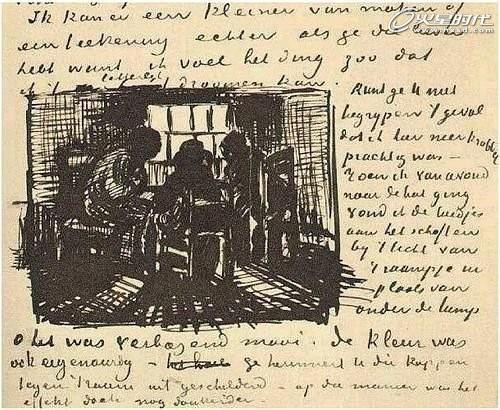 Ik kan er een kleiner van maken of
een teekening echter als ge die
hebt want ik voel het ding zoo dat
ik 't letterlijk droomen kan.
火星时代
www.hxsd.com
Kunt ge U niet
begrypen 't geval
dat ik hier neerkrabbel
prachtig was –
Toen ik van avond
naar de hut ging
vond ik de luidjes
aan het schaften
by 't licht van
't raampje in
plaats van
onder de lamp
o het was verbazend mooi. de kleur was
ook eigenaardig – ge herinnert U die koppen
tegen 't raam uit geschilderd – op die manier was het
effekt doch nog donkerder.